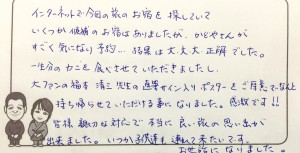 インターネットで今回の旅のお宿を探していて
いくつか候補のお宿はありましたが、かどやさんが
すごく気になり予約… 結果は大、大、大、正解でした。
一生分のかにを食べさせていただきましたし、
大ファンの福本 清三先生の直筆サイン入りポスターをご用意で…なんと
持ち帰らせていただける事になりました。感激です!!
皆様、親切な対応で本当に良い旅の思い出が
出来ました。いつか子供達も連れて来たいです。
お世話になりました。